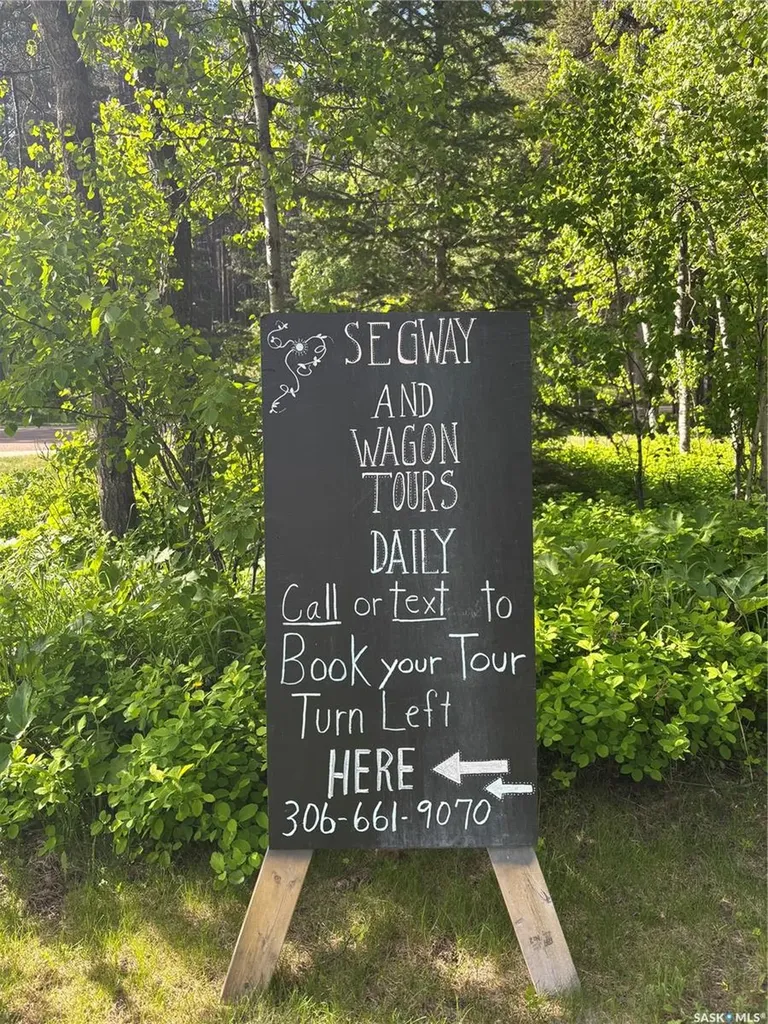 SEGWAY
AND
WAGON
TOURS
DAILY
Call or text to
Book your Tour
Turn Left
HERE
306-661-9070
SASK MLS®